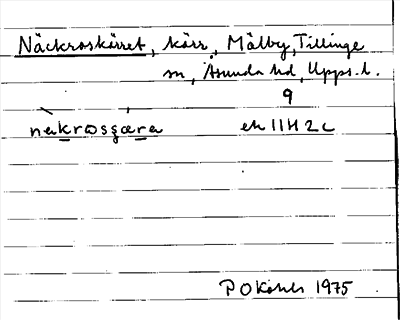 Näckroskärret, kärr, Mälby, Tillinge
sn, Åsunda hd, Upps. l.
9
nakrosʂæra ek 11H2c
P O Kåhrs 1975